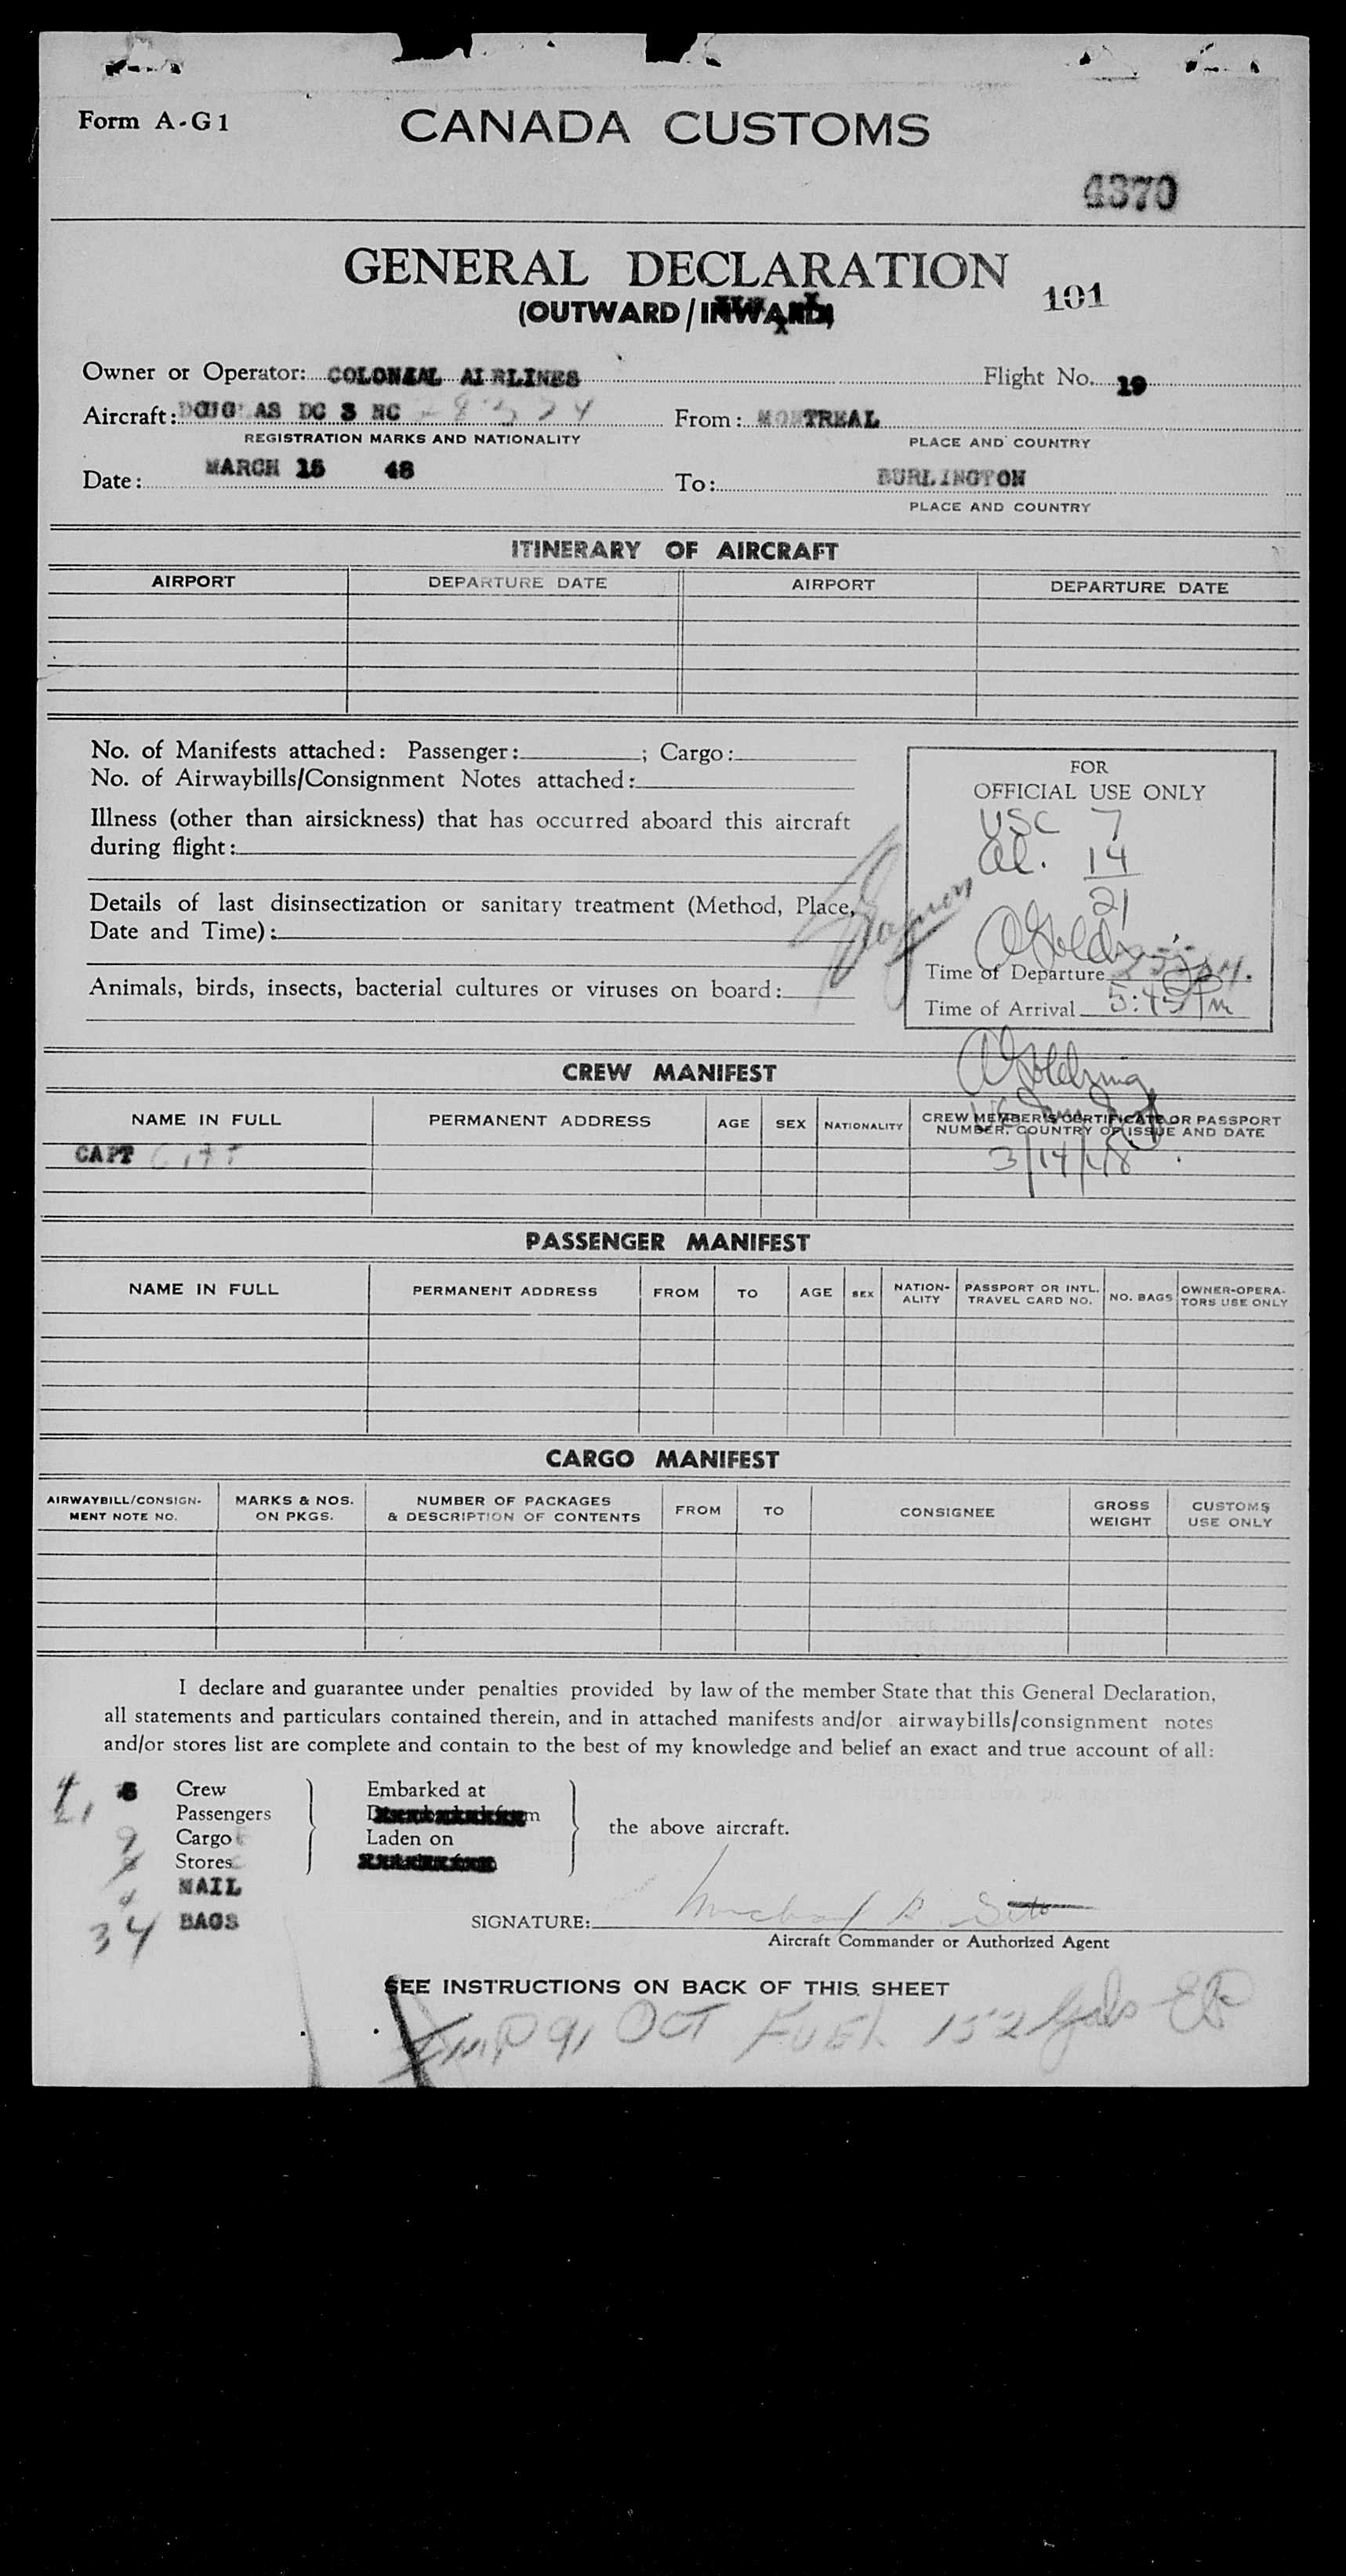 Form A-G1
CANADA CUSTOMS
4370
GENERAL DECLARATION
(OUTWARD/INWARD)
101
Owner or Operator: COLONIAL AIRLINES Flight No. 19
Aircraft: DOUGLAS DC 3 NC From: MONTREAL
REGISTRATION MARKS AND NATIONALITY PLACE AND COUNTRY
Date: MARCH 15 48 To: BURLINGTON
PLACE AND COUNTRY
ITINERARY OF AIRCRAFT
AIRPORT DEPARTURE DATE AIRPORT DEPARTURE DATE
No. of Manifests attached: Passenger: ; Cargo:
No. of Airwaybills/Consignment Notes attached:
Illness (other than airsickness) that has occurred aboard this aircraft
during flight:
Details of last disinsectization or sanitary treatment (Method, Place,
Date and Time):
Animals, birds, insects, bacterial cultures or viruses on board:
FOR
OFFICIAL USE ONLY
USC 7
al. 14
21
Time of Departure
Time of Arrival 5:45 Pm
CREW MANIFEST
NAME IN FULL PERMANENT ADDRESS AGE SEX NATIONALITY CREW MEMBER'S CERTIFICATE OR PASSPORT
NUMBER, COUNTRY OF ISSUE AND DATE
CAPT
3/14/48
PASSENGER MANIFEST
NAME IN FULL PERMANENT ADDRESS FROM TO AGE SEX NATION-
ALITY PASSPORT OR INTL.
TRAVEL CARD NO. NO. BAGS OWNER-OPERA-
TORS USE ONLY
CARGO MANIFEST
AIRWAYBILL/CONSIGN-
MENT NOTE NO. MARKS & NOS.
ON PKGS. NUMBER OF PACKAGES
& DESCRIPTION OF CONTENTS FROM TO CONSIGNEE GROSS
WEIGHT CUSTOMS
USE ONLY
I declare and guarantee under penalties provided by law of the member State that this General Declaration,
all statements and particulars contained therein, and in attached manifests and/or airwaybills/consignment notes
and/or stores list are complete and contain to the best of my knowledge and belief an exact and true account of all:
Crew Embarked at
Passengers
Cargo Laden on
Stores
the above aircraft.
MAIL
34 BAGS
SIGNATURE:
Aircraft Commander or Authorized Agent
SEE INSTRUCTIONS ON BACK OF THIS SHEET
IMP 91 OCT FUEL 152 Gals